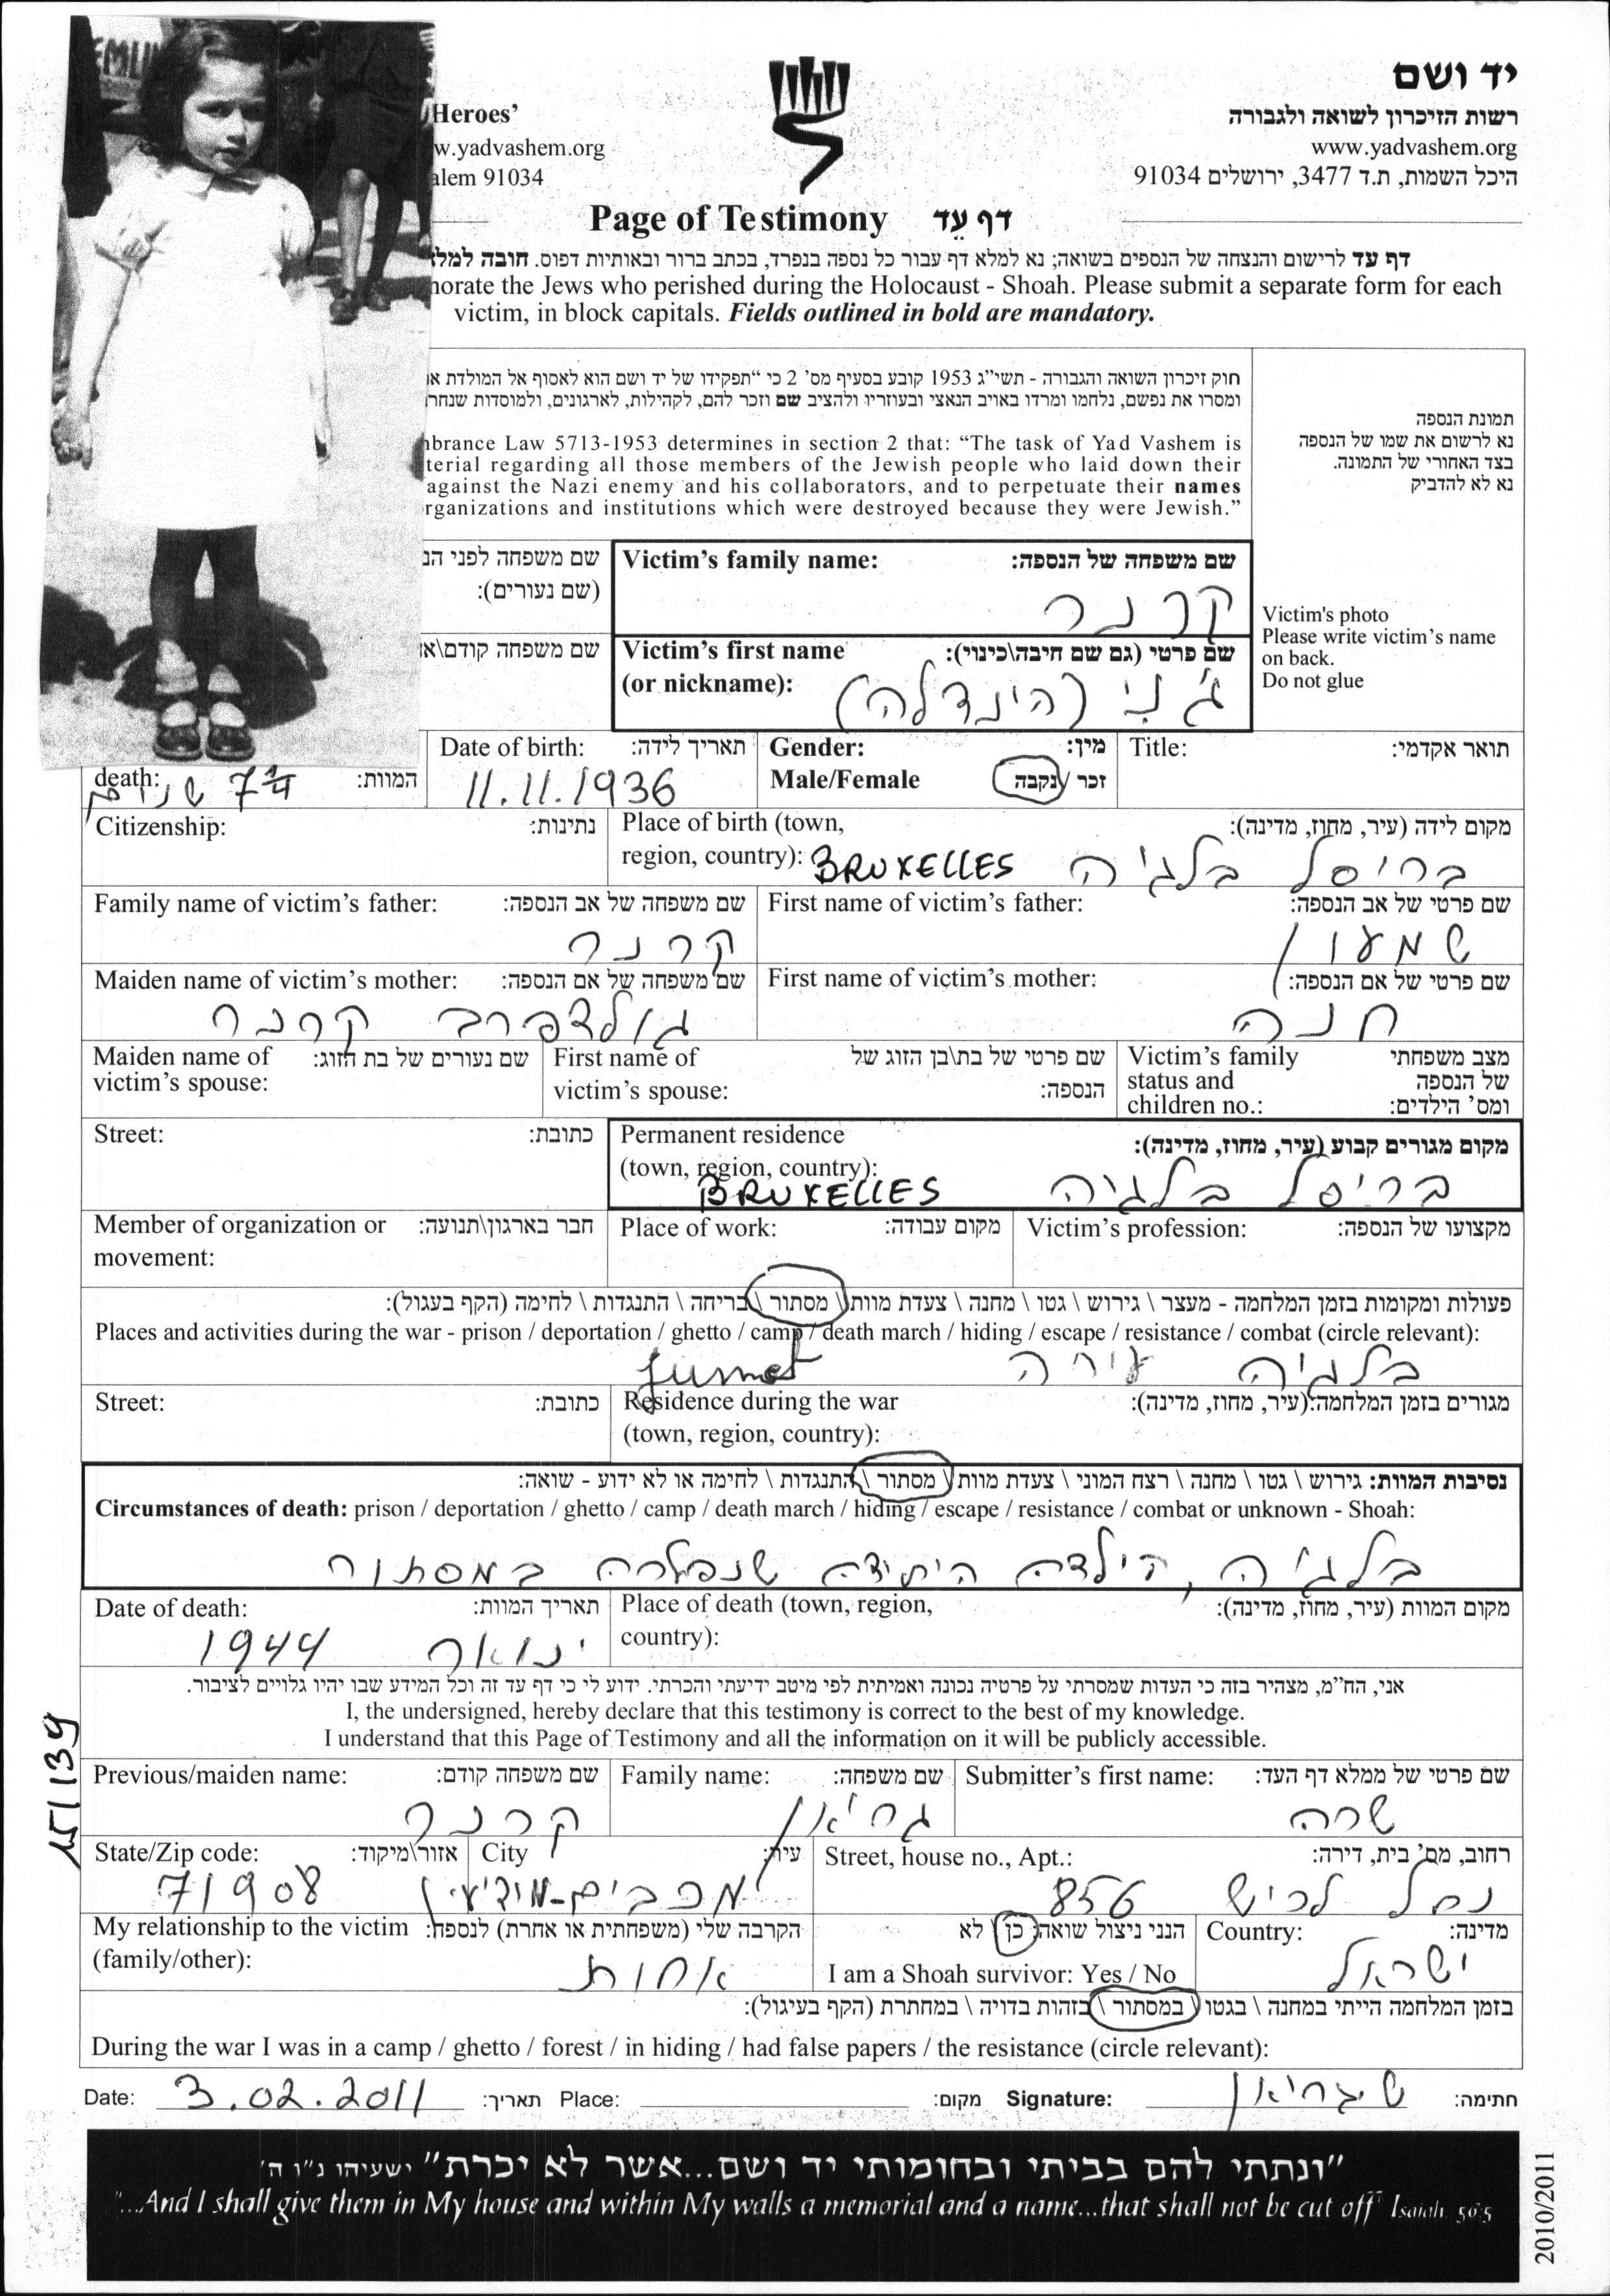 EMLI
יד ושם
רשות הזיכרון לשואה ולגבורה
www.yadvashem.org
היכל השמות, ת.ד 3477, ירושלים 91034
Heroes'
w.yadvashem.org
alem 91034
Page of Testimony דף עֵד
דף עד לרישום והנצחה של הנספים בשואה; נא למלא דף עבור כל נספה בנפרד, בכתב ברור ובאותיות דפוס. חובה למלא
norate the Jews who perished during the Holocaust - Shoah. Please submit a separate form for each
victim, in block capitals. Fields outlined in bold are mandatory.
חוק זיכרון השואה והגבורה - תשי"ג 1953 קובע בסעיף מס' 2 כי "תפקידו של יד ושם הוא לאסוף אל המולדת א
ומסרו את נפשם, נלחמו ומרדו באויב הנאצי ובעוזריו ולהציב שם וזכר להם, לקהילות, לארגונים, ולמוסדות שנחר
nbrance Law 5713-1953 determines in section 2 that: "The task of Yad Vashem is
terial regarding all those members of the Jewish people who laid down their
against the Nazi enemy and his collaborators, and to perpetuate their names
rganizations and institutions which were destroyed because they were Jewish."
תמונת הנספה
נא לרשום את שמו של הנספה
בצד האחורי של התמונה.
נא לא להדביק
Victim's photo
Please write victim's name
on back.
Do not glue
שם משפחה לפני הנ
(שם נעורים):
Victim's family name: שם משפחה של הנספה:
קרנר
שם משפחה קודם\או
Victim's first name שם פרטי (גם שם חיבה\כינוי):
(or nickname):
ג'ני (הינדלה)
death: המוות:
7¼ שנים
Date of birth: תאריך לידה:
11.11.1936
Gender: מין:
Male/Female זכר / נקבה
Title: תואר אקדמי:
Citizenship: נתינות:
Place of birth (town, מקום לידה (עיר, מחוז, מדינה):
region, country): BRUXELLES בריסל בלגיה
Family name of victim's father: שם משפחה של אב הנספה:
קרנר
First name of victim's father: שם פרטי של אב הנספה:
שמעון
Maiden name of victim's mother: שם משפחה של אם הנספה:
גולדפרב קרנר
First name of victim's mother: שם פרטי של אם הנספה:
חנה
Maiden name of שם נעורים של בת הזוג:
victim's spouse:
First name of שם פרטי של בת\בן הזוג של
victim's spouse: הנספה:
Victim's family מצב משפחתי
status and של הנספה
children no.: ומס' הילדים:
Street: כתובת:
Permanent residence מקום מגורים קבוע (עיר, מחוז, מדינה):
(town, region, country):
BRUXELLES בריסל בלגיה
Member of organization or חבר בארגון\תנועה:
movement:
Place of work: מקום עבודה:
Victim's profession: מקצועו של הנספה:
פעולות ומקומות בזמן המלחמה - מעצר \ גירוש \ גטו \ מחנה \ צעדת מוות \ מסתור \ בריחה \ התנגדות \ לחימה (הקף בעגול):
Places and activities during the war - prison / deportation / ghetto / camp / death march / hiding / escape / resistance / combat (circle relevant):
בלגיה עירה Jumet
Street: כתובת:
Residence during the war מגורים בזמן המלחמה (עיר, מחוז, מדינה):
(town, region, country):
נסיבות המוות: גירוש \ גטו \ מחנה \ רצח המוני \ צעדת מוות \ מסתור \ התנגדות \ לחימה או לא ידוע - שואה:
Circumstances of death: prison / deportation / ghetto / camp / death march / hiding / escape / resistance / combat or unknown - Shoah:
בלגיה, הילדה היחידה שנפטרה במסתור
Date of death: תאריך המוות:
ינואר 1944
Place of death (town, region, מקום המוות (עיר, מחוז, מדינה):
country):
אני, הח"מ, מצהיר בזה כי העדות שמסרתי על פרטיה נכונה ואמיתית לפי מיטב ידיעתי והכרתי. ידוע לי כי דף עד זה וכל המידע שבו יהיו גלויים לציבור.
I, the undersigned, hereby declare that this testimony is correct to the best of my knowledge.
I understand that this Page of Testimony and all the information on it will be publicly accessible.
151139
Previous/maiden name: שם משפחה קודם:
קרנר
Family name: שם משפחה:
גריאן
Submitter's first name: שם פרטי של ממלא דף העד:
שרה
State/Zip code: אזור\מיקוד:
71908
City עיר:
מכבים-מודיעין
Street, house no., Apt.: רחוב, מס' בית, דירה:
נחל לכיש 856
My relationship to the victim הקרבה שלי (משפחתית או אחרת) לנספה:
(family/other):
אחות
הנני ניצול שואה: כן \ לא
I am a Shoah survivor: Yes / No
Country: מדינה:
ישראל
בזמן המלחמה הייתי במחנה \ בגטו \ במסתור \ בזהות בדויה \ במחתרת (הקף בעיגול):
During the war I was in a camp / ghetto / forest / in hiding / had false papers / the resistance (circle relevant):
Date: 3.02.2011 תאריך: Place: מקום: Signature: חתימה:
"ונתתי להם בביתי ובחומותי יד ושם...אשר לא יכרת" ישעיהו נ"ו ה'
"...And I shall give them in My house and within My walls a memorial and a name...that shall not be cut off" Isaiah 56:5
2010/2011